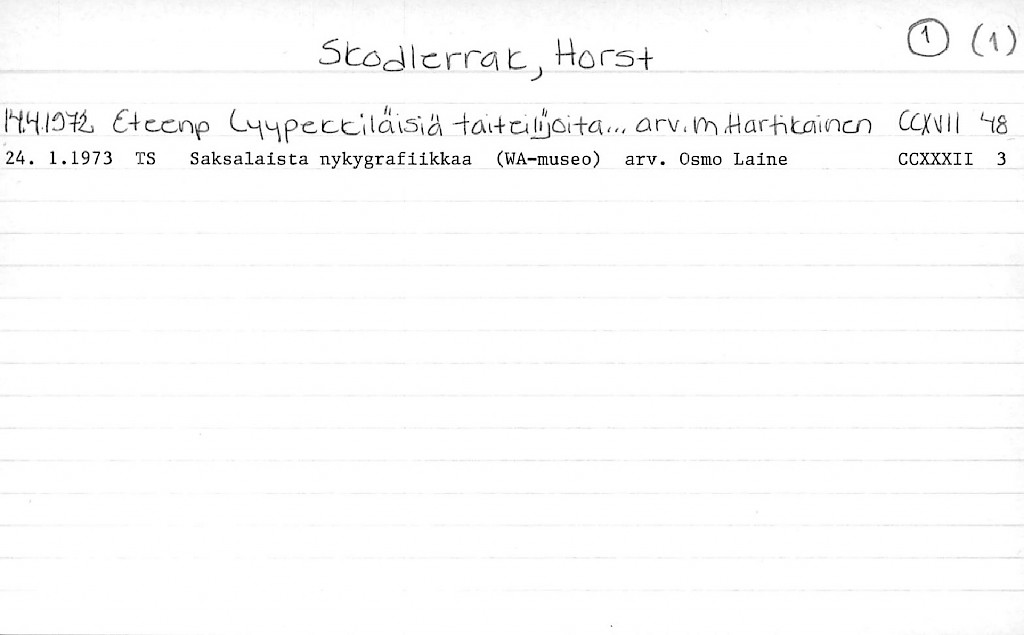 ① (1)
Skodlerrak, Horst
14.4.1972 Eteenp Lyypekkiläisiä taiteilijoita... arv. M. Hartikainen CCXVII 48
24. 1.1973 TS Saksalaista nykygrafiikkaa (WA-museo) arv. Osmo Laine CCXXXII 3